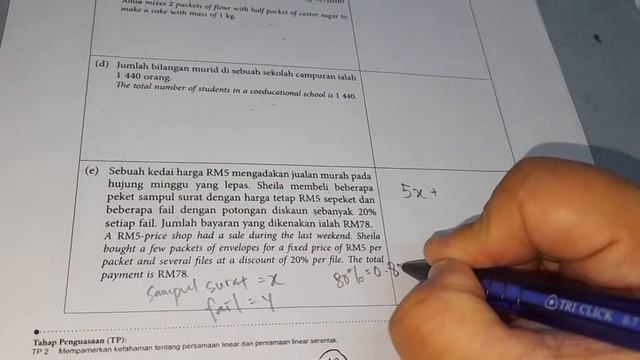 Amin mixes 2 packets of flour with half packet of castor sugar to
make a cake with mass of 1 kg.
(d) Jumlah bilangan murid di sebuah sekolah campuran ialah
1 440 orang.
The total number of students in a coeducational school is 1 440.
(e) Sebuah kedai harga RM5 mengadakan jualan murah pada
hujung minggu yang lepas. Sheila membeli beberapa
peket sampul surat dengan harga tetap RM5 sepeket dan
beberapa fail dengan potongan diskaun sebanyak 20%
setiap fail. Jumlah bayaran yang dikenakan ialah RM78.
A RM5-price shop had a sale during the last weekend. Sheila
bought a few packets of envelopes for a fixed price of RM5 per
packet and several files at a discount of 20% per file. The total
payment is RM78.
5x +
sampul surat = x
fail = y
80% = 0.8
TRI CLICK 0.7
Tahap Penguasaan (TP):
TP 2 Mempamerkan kefahaman tentang persamaan linear dan persamaan linear serentak.